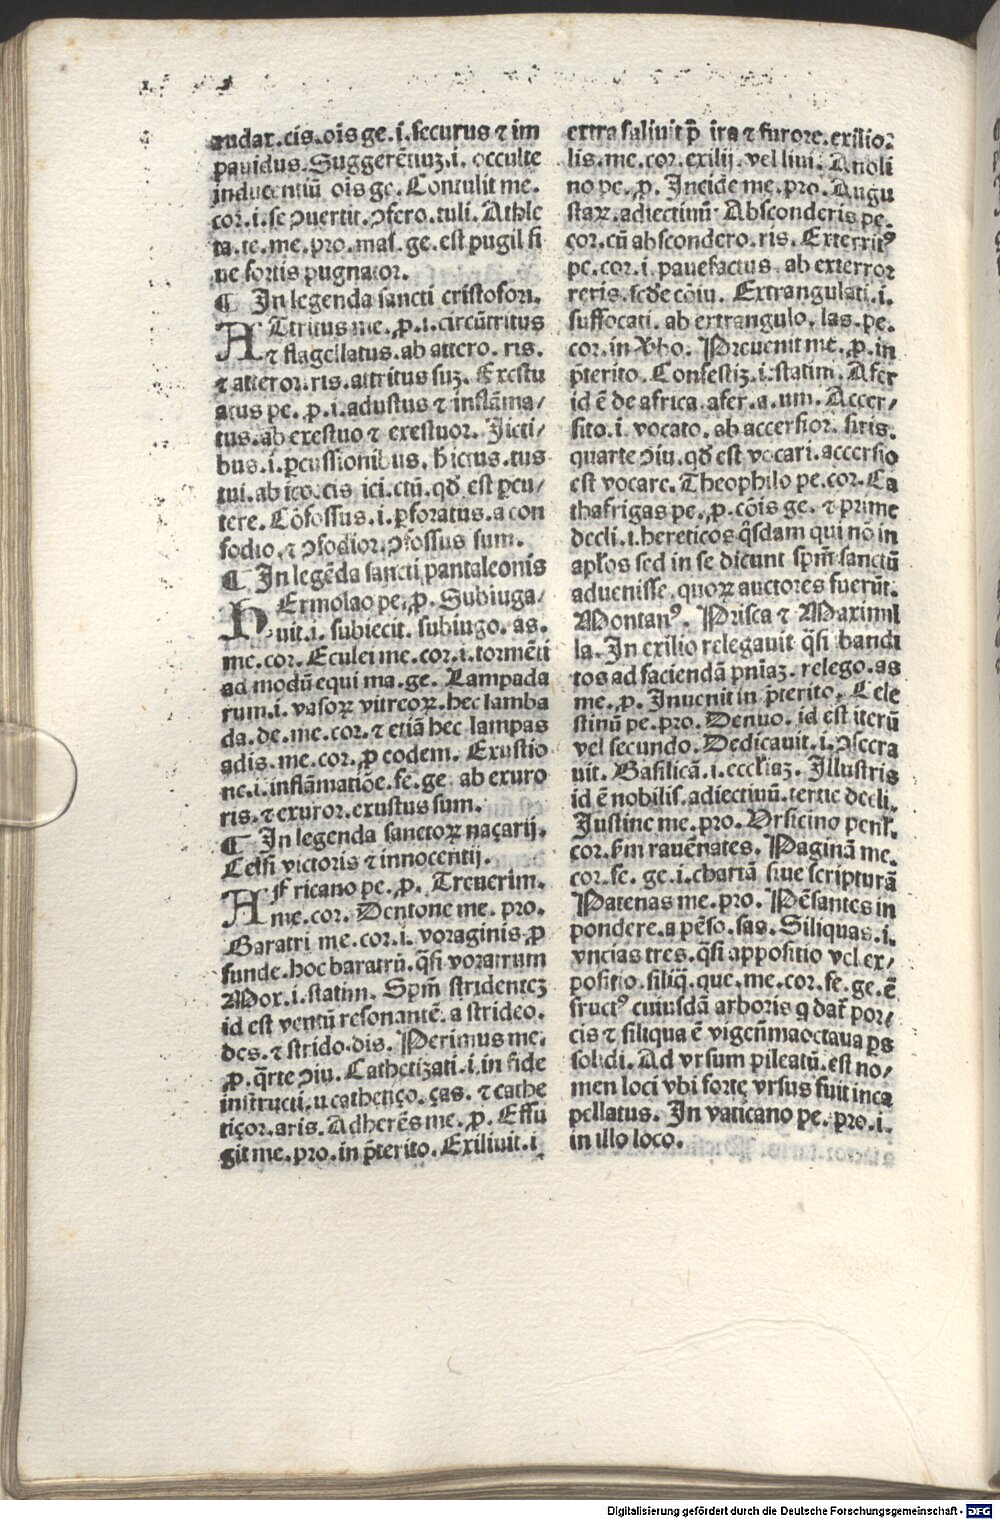 audax.cis.oīs ge.i.securus ⁊ im
pauidus.Suggerētiuꝫ.i.occulte
inducentiū oīs ge.Contulit me.
cor.i.se ↄuertit.ↄfero.tuli.Athle
ta.te.me.pro.mas.ge.est pugil si
ue fortis pugnator.
¶ In legenda sancti cristofori.
ATtritus me.ꝓ.i.circūtritus
⁊ flagellatus.ab attero.ris.
⁊ atteror.ris.attritus suꝫ.Exestu
atus pe.ꝓ.i.adustus ⁊ inflāma/
tus.ab exestuo ⁊ exestuor. Jicti/
bus.i.ꝑcussionibus.h̄ ictus.tus
tui.ab ico.cis ici.ctū.qd̄ est ꝑcu/
tere.Cōfossus.i.ꝑforatus.a con
fodio.⁊ ↄfodior.ↄfossus sum.
¶ In legēda sancti pantaleonis
HErmolao pe.ꝓ. Subiuga/
uit.i. subiecit. subiugo. as.
me.cor.Eculei me.cor.i.tormēti
ad modū equi ma.ge. Lampada
rum.i. vasoꝝ vitreoꝝ.hec lamba
da.de.me.cor.⁊ etiā hec lampas
adis.me.cor.ꝓ eodem. Exustio
ne.i.inflāmatiōe.fe.ge.ab exuro
ris.⁊ exuror.exustus sum.
¶ In legenda sanctoꝝ naçarij.
Celsi victoris ⁊ innocentij.
AFricano pe.ꝓ. Treuerim.
me.cor. Dentone me. pro.
Baratri me.cor.i. voraginis ꝓ
funde.hoc baratrū.q̄si voratrum
Mox.i.statim. Spm̄ stridenteꝫ
id est ventū resonantē.a strideo.
des.⁊ strido.dis. Perimus me.
ꝓ.q̄rte ↄiu. Cathetizati.i.in fide
instructi.a cathetiço.ças. ⁊ cathe
tiçor.aris.Adherēs me.ꝓ. Effu
git me.pro.in p̄terito.Exiliuit.i.
extra saliuit p̄ ira ⁊ furore.exilio.
lis.me.cor.exilij.vel liui. Anoli
no pe.ꝓ. Incide me.pro.Augu
staꝝ.adiectiuū Absconderis pe.
cor.cū abscondero.ris. Exterrit⁹
pe.cor.i.pauefactus.ab exterror
reris.secde cōiu. Extrangulati.i.
suffocati.ab extrangulo.las.pe.
cor.in x̄bo. Preuenit me.ꝓ.in
p̄terito.Confestiꝫ.i.statim.Afer
id ē de africa.afer.a.um. Accer/
sito.i.vocato.ab accersior.siris.
quarte ↄiu.qd̄ est vocari.accersio
est vocare.Theophilo pe.cor.Ca
thafrigas pe.ꝓ.cōis ge.⁊ prime
decli.i.hereticos q̄sdam qui nō in
apl̄os sed in se dicunt spm̄ sanctū
aduenisse.quoꝝ auctores fuerūt.
Montan⁹. Prisca ⁊ Maximil
la. In exilio relegauit q̄si bandi
tos ad faciendā pn̄iaꝫ.relego.as
me.ꝓ. Inuenit in p̄terito. Cele
stinū pe.pro. Denuo.id est iterū
vel secundo. Dedicauit.i.ↄsecra
uit. Basilicā.i.eccl̄iaꝫ. Illustris
id ē nobilis.adiectiuū.tertie decli.
Justine me.pro. Vrsicino penl̄.
cor.fm̄ rauēnates. Paginā me.
cor.fe. ge.i.chartā siue scripturā
Patenas me.pro. Pēsantes in
pondere.a pēso.sas. Siliquas.i.
vncias tres.q̄si appositio vel ex/
positio.siliq̄.que.me.cor.fe.ge.ē
fruct⁹ cuiusdā arboris q dat̄ por/
cis ⁊ siliqua ē vigen̄maoctaua ꝑs
solidi. Ad vrsum pileatū.est no/
men loci vbi forte vrsus fuit inca
pellatus. In vaticano pe. pro.i.
in illo loco.
Digitalisierung gefördert durch die Deutsche Forschungsgemeinschaft - DFG